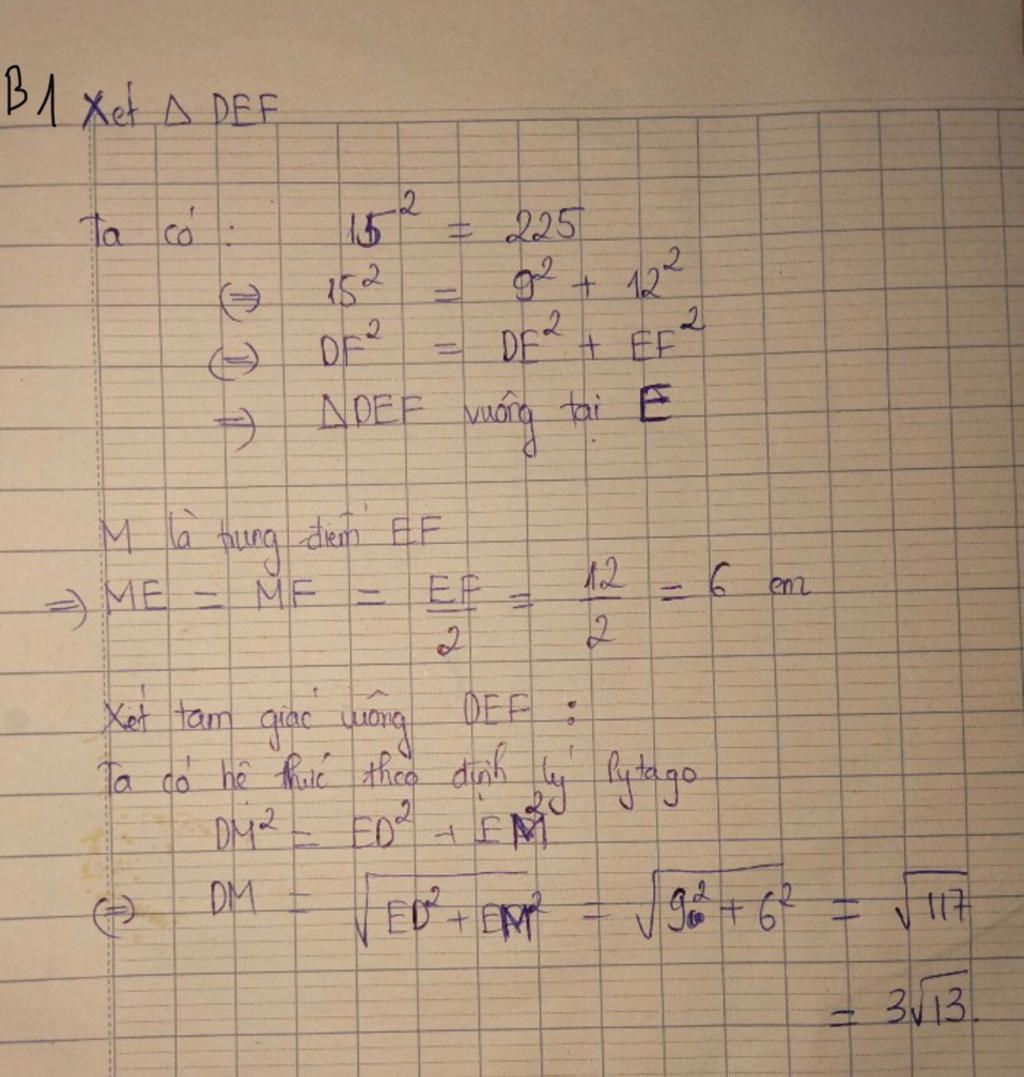 B1 Xét Δ DEF
Ta có : 15² = 225
(⇒) 15² = 9² + 12²
(⇒) DF² = DE² + EF²
⇒) ΔDEF vuông tại E
M là trung điểm EF
⇒) ME = MF = EF/2 = 12/2 = 6 cm
Xét tam giác vuông DEF :
Ta có hệ thức theo định lý Pytago
DM² = ED² + EM²
(⇒) DM = √(ED² + EM²) = √(9² + 6²) = √117
= 3√13.